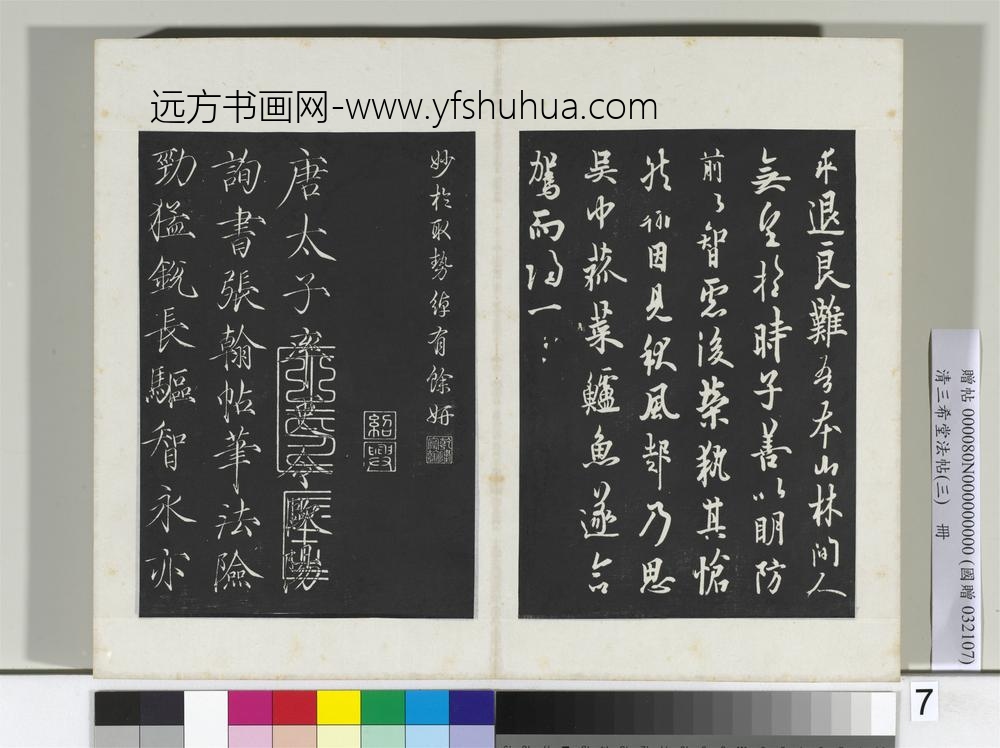 远方书画网-www.yfshuhua.com
求退良難吾本山林間人
無望於時子善以明防
前以智慮後榮執其愴
然翰因見秋風起乃思
吳中菰菜鱸魚遂命
駕而歸
妙於取勢綽有餘妍
紹興
唐太子率更令歐陽
詢書張翰帖筆法險
勁猛銳長驅智永亦
贈帖 0000080N000000000 (國贈 032107)
清三希堂法帖(三) 冊
7